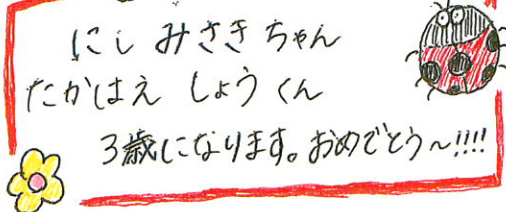 にし みさき ちゃん
たかはえ しょう くん
3歳になります。おめでとう～!!!!